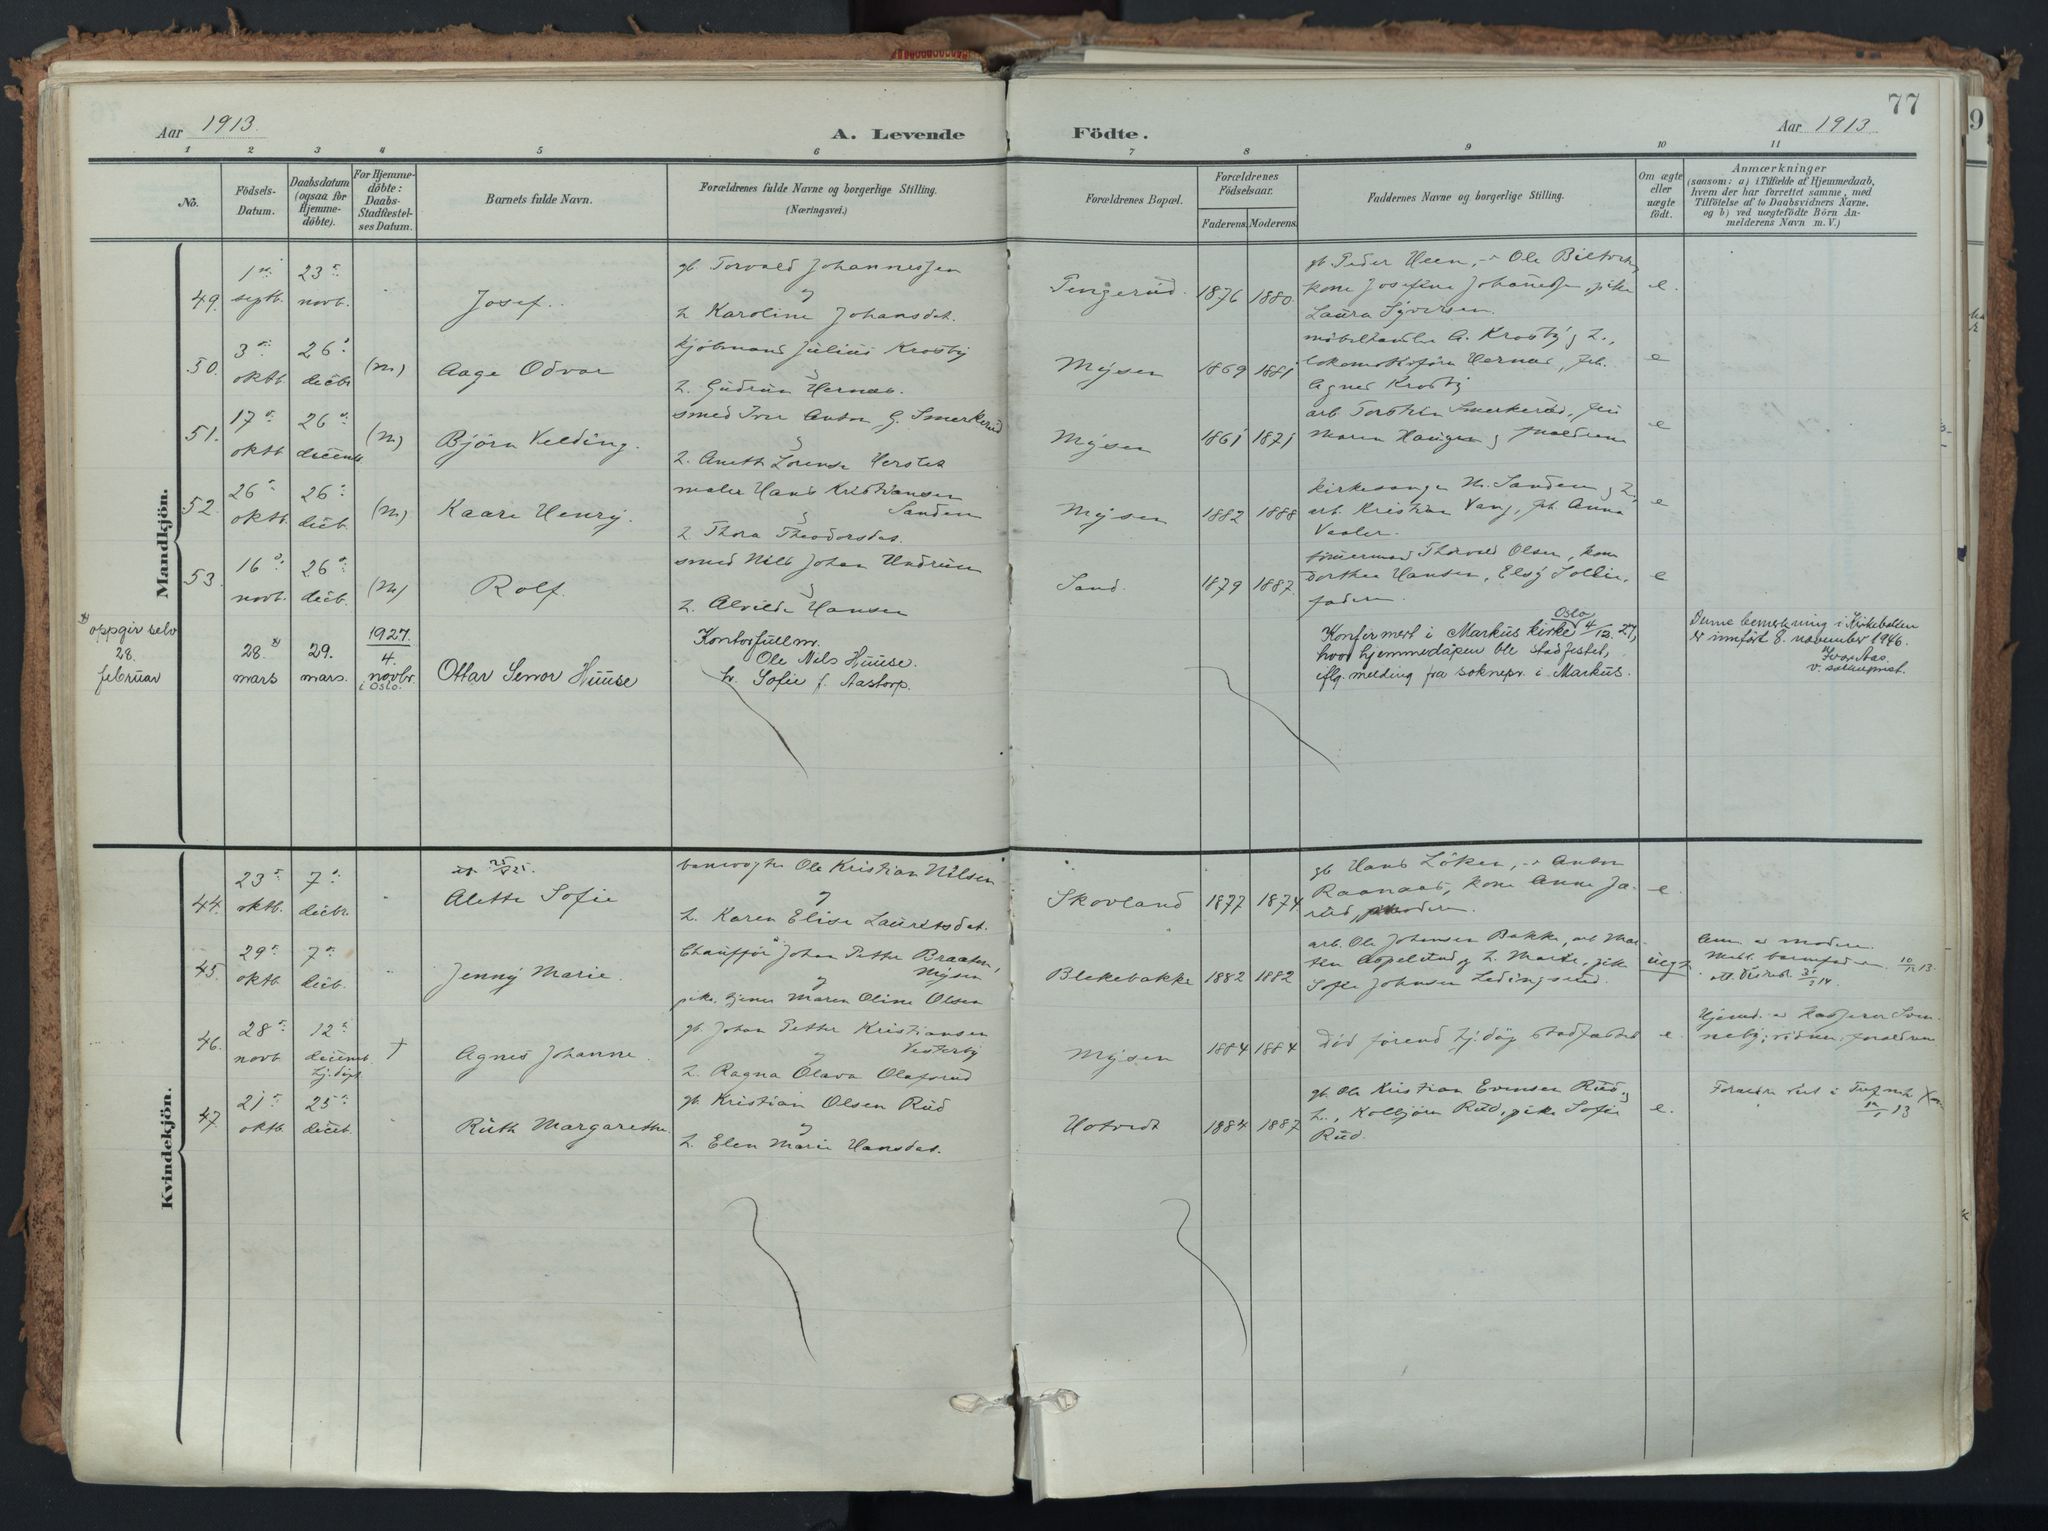 77
Aar 1913.
A. Levende Födte.
Aar 1913
1 2 3 4 5 6 7 8 9 10 11
No.
Födsels-
Datum.
Daabsdatum
(ogsaa for
Hjemme-
döbte).
For Hjemme-
döbte:
Daabs-
Stadfæstel-
ses Datum.
Barnets fulde Navn.
Forældrenes fulde Navne og borgerlige Stilling.
(Næringsvei.)
Forældrenes Bopæl.
Forældrenes
Födselsaar.
Faderens. Moderens.
Faddernes Navne og borgerlige Stilling.
Om ægte
eller
uægte
födt.
Anmærkninger
(saasom: a) i Tilfælde af Hjemmedaab,
hvem der har forrettet samme, med
Tilföielse af to Daabsvidners Navne.
og b) ved uegtefödte Börn An-
melderens Navn m. V.)
Mandkjön.
49.
1
septb.
23
novb.
Josef.
gb. Torvald Johannessen
og
h. Karoline Johansdat.
Pengerud.
1876
1880.
gb. Peder Heen, Ole
kone Josefine pike
Laura Syversen.
e.
50.
3
oktb.
26
decbr
(m)
Aage Odvar
kjöbmand Julius Krosby
h. Gudrun Hernæs.
Mysen
1869
1881
möbelhandler A. Krosby og h.,
Hernæs,
Agnes Krosby
e
51.
17
oktb
26
decemb.
(m)
Björn Velding.
smed Iver Anton G. Smerkerud
h. Aneth Lorense
Mysen
1861
1871
arb. Torstein Smerkerud,
Maren Haugen og forældrene
e
52.
26
oktb.
26
decb.
(m)
Kaare Henry.
maler Hans Kristiansen
Sanden
h. Thora Theodorsdat.
Mysen
1882
1888
kirkesanger Sanden og h.
arb. Kristian Vang, Anna
Vaaler.
e
53.
16
novb.
26
decb.
(m)
Rolf.
smed Nils Johan Undrum
h. Alvilde Hansen
Sand.
1879
1887.
tömermand Thorvald Olsen, kone
Dorthea Hansen, Elsy Sollie,
faderen.
e
x) oppgir selv
28.
februar
28. x)
mars
29.
mars.
1927.
4.
novbr.
i Oslo.
Ottar Senior Huuse
Kontorfullm.
Ole Nils Huuse.
h. Sofie f. Aastorp.
Konfirmert i Markus kirke Oslo 4/12. 27,
hvor hjemmedåpen ble stadfestet,
iflg. melding fra soknepr. i Markus.
Denne bemerkning i Kirkeboken
er innført 8. november 1946.
Ivar Aas.
v. sokneprest.
Kvindekjön.
44.
23
oktb.
7
decbr.
Alette Sofie
banevogter Ole Kristian Nilsen
og
h. Karen Elise Lauritsdat.
Skovland
1877
1874
gb Hans Löken, Anton
Raanaas, kone Anne Ja-
rud, moderen.
e.
45.
29
oktb.
7
decb.
Jenny Marie.
Chauffør Johan Petter Braaten,
Mysen
og
pike, tjener Maren Oline Olsen
Blekebakke
1882
1882
arb. Ole Johansen Bakke, arb. Mar-
tin Aspelund og h. Marie, pike
Sofie Johnsen Ledingsrud.
uegt.
Anm. av moderen.
Medt. barnefaderen 10/12 13.
46.
28
novb.
12
decemb.
hj. døpt.
†
Agnes Johanne.
gb. Johan Petter Kristiansen
Vesterby
og
h. Ragna Olava Olafsrud
Mysen
1884
1884
Död førend hj. dåp stadfæstet
e.
Hjemd. av Kasperer Svin-
neby; vidner: forældrene
47.
21
oktb.
25
decb.
Ruth Margarethe.
gb. Kristian Olsen Rud
og
h. Elen Marie Hansdat.
Hotvedt
1884
1887
gb. Ole Kristian Evensen Rud og
h., Kolbjörn Rud, pike Sofie
Rud.
e.
Forældre viet i